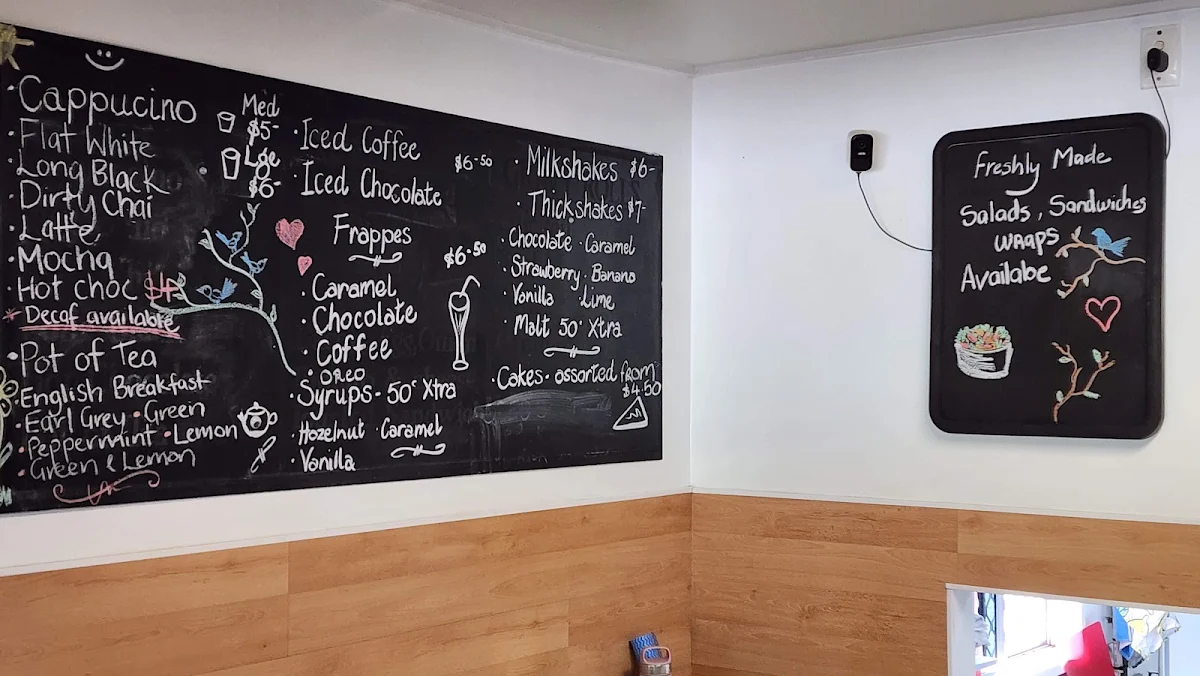 · Cappucino
· Flat White
· Long Black
· Dirty Chai
· Latte
· Mocha
· Hot choc
* Decaf available
· Pot of Tea
· English Breakfast
· Earl Grey · Green
· Peppermint · Lemon
· Green & Lemon
Med
$5-
Lge
$6-
· Iced Coffee
$6-50
· Iced Chocolate
Frappes
$6.50
· Caramel
· Chocolate
· Coffee
· OREO
· Syrups - 50c Xtra
· Hazelnut · Caramel
· Vanilla
· Milkshakes $6-
· Thickshakes $7-
· Chocolate · Caramel
· Strawberry · Banana
· Vanilla · Lime
· Malt 50c Xtra
· Cakes - assorted from
$4.50
Freshly Made
Salads, Sandwiches
wraps
Availabe